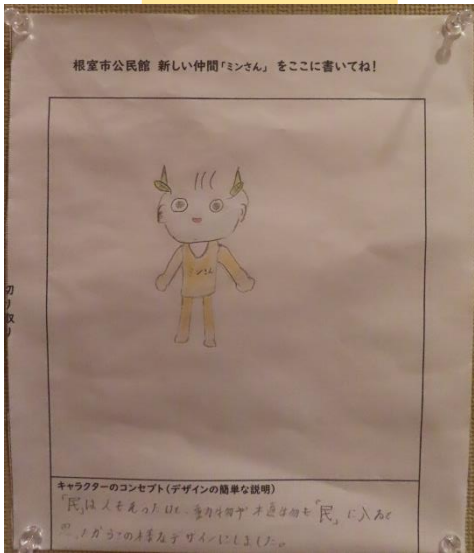 根室市公民館 新しい仲間「ミンさん」 をここに書いてね!
ミンさん
切り取り
キャラクターのコンセプト(デザインの簡単な説明)
「民」は人をもっ 動植物や 「民」に入ると
からこの様なデザインにしました。